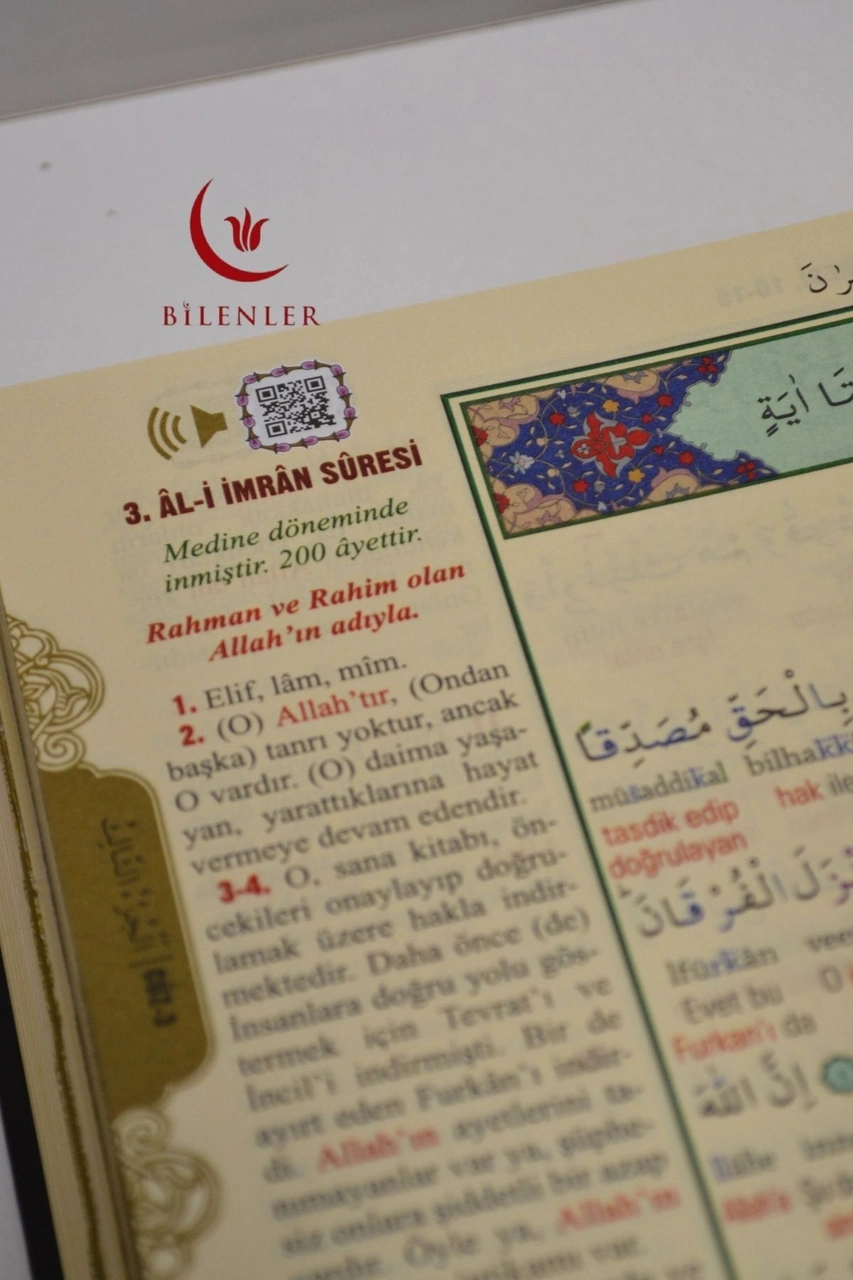 BİLENLER
3. ÂL-İ İMRÂN SÛRESİ
Medine döneminde
inmiştir. 200 âyettir.
Rahman ve Rahim olan
Allah'ın adıyla.
1. Elif, lâm, mîm.
2. (O) Allah'tır, (Ondan
başka) tanrı yoktur, ancak
O vardır. (O) daima yaşa-
yan, yarattıklarına hayat
vermeye devam edendir.
3-4. O, sana kitabı, ön-
cekileri onaylayıp doğru-
lamak üzere hakla indir-
mektedir. Daha önce (de)
İnsanlara doğru yolu gös-
termek için Tevrat'ı ve
İncil'i indirmişti. Bir de
ayırt eden Furkân'ı indir-
di. Allah'ın ayetlerini ta-
nımayanlar var ya, şüphe-
siz onlara şiddetli bir azap
vardır. Öyle ya, Allah'ın
intikamı var.
الْجُزْءُ الثَّالِثُ | CÜZ-3
اٰيَةٍ
بِالْحَقِّ مُصَدِّقًا
müsaddikal bilhakk
tasdik edip hak ile
doğrulayan
الْفُرْقَانَ
lfürkân
Evet bu O
Furkan'ı da
اِنَّ اللّٰهَ